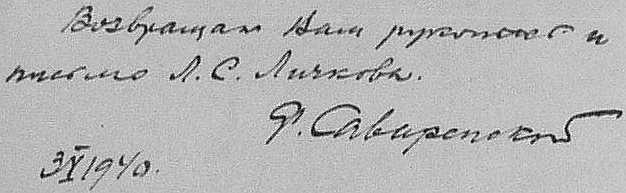 Возвращаю Вам рукопись и
письмо Л. С. Личкова.
Ф. Саваренский
3 X 1940.